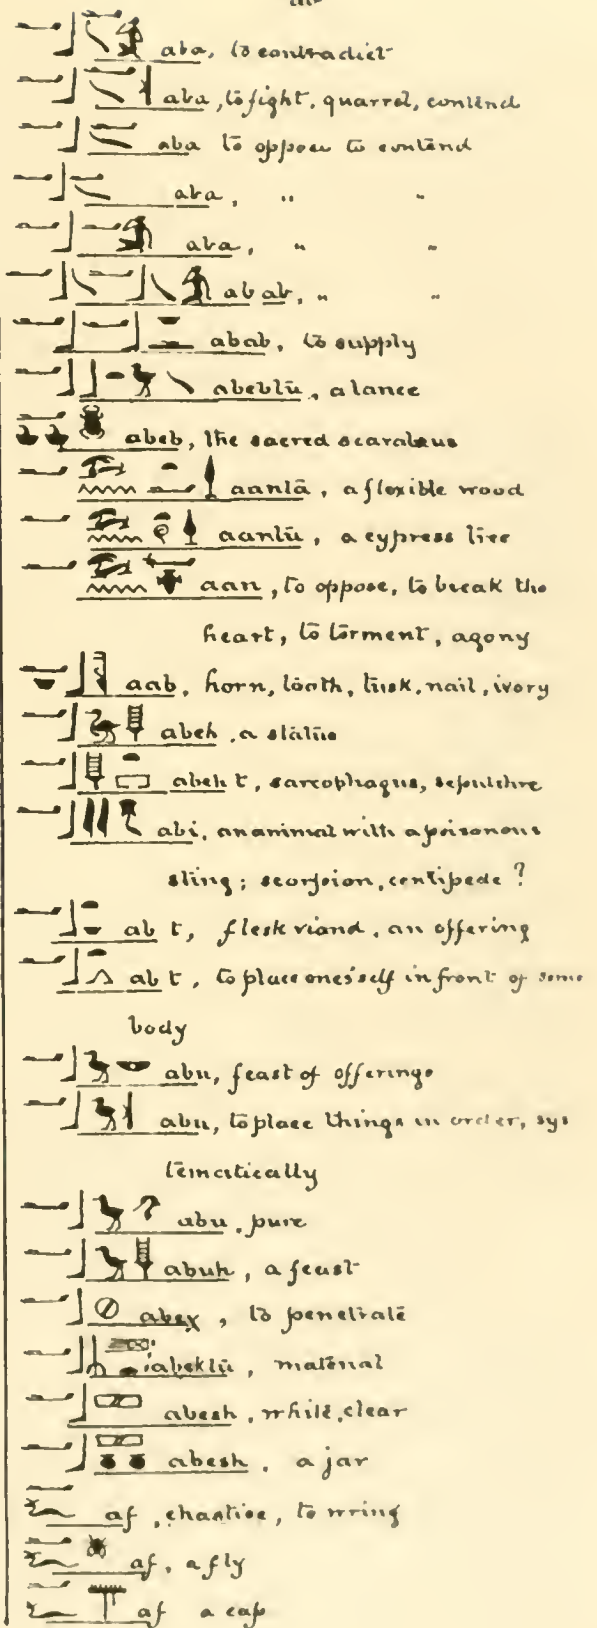 aba, to contradict
aba, to fight, quarrel, contend
aba to oppose to contend
aba, " "
aba, " "
abab, " "
abab, to supply
abebtu, a lance
abeb, the sacred scarabeus
aanta, a flexible wood
aantu, a cypress tree
aan, to oppose, to break the
heart, to torment, agony
aab, horn, tooth, tusk, nail, ivory
abeh, a statue
abeh t, sarcophagus, sepulchre
abi, an animal with a poisonous
sting; scorpion, centipede?
ab t, flesh viand, an offering
ab t, to place one's self in front of some
body
abu, feast of offerings
abu, to place things in order, sys
tematically
abu, pure
abuh, a feast
abex, to penetrate
abektu, material
abesh, white, clear
abesh, a jar
af, chastise, to wring
af, a fly
af a cap